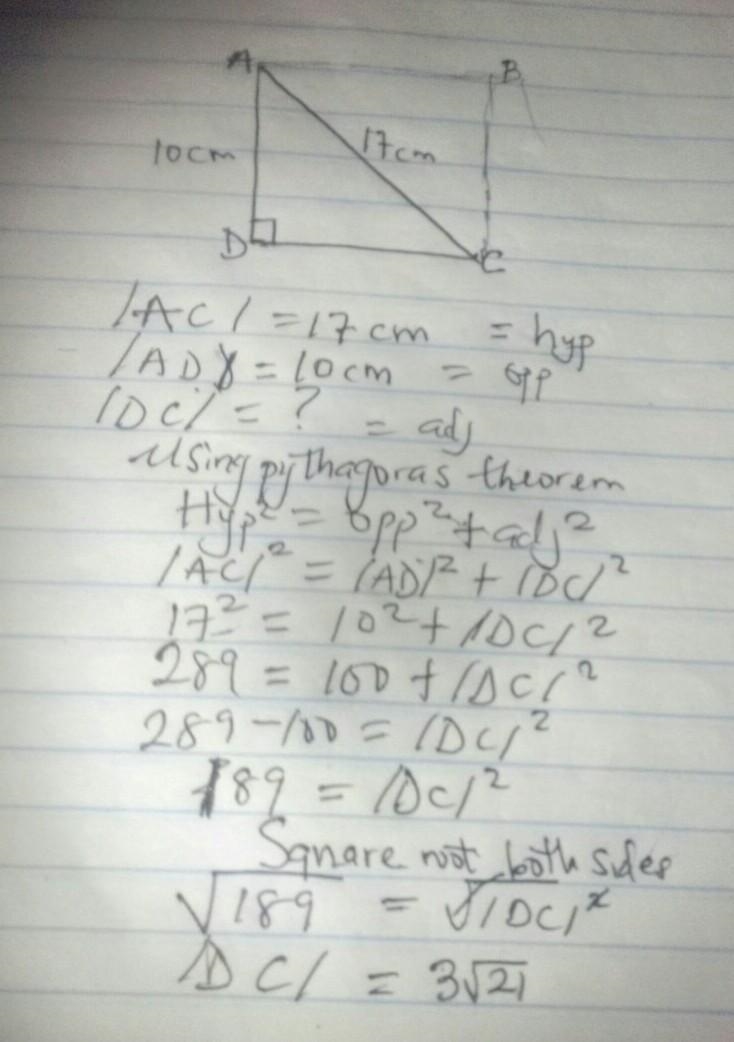 A B
10cm 17cm
D C
/AC/ = 17 cm = hyp
/AD/ = 10cm = opp
/DC/ = ? = adj
Using pythagoras theorem
Hyp² = opp² + adj²
/AC/² = /AD/² + /DC/²
17² = 10² + /DC/²
289 = 100 + /DC/²
289 - 100 = /DC/²
189 = /DC/²
Square root both sides
√189 = √/DC/²
/DC/ = 3√21